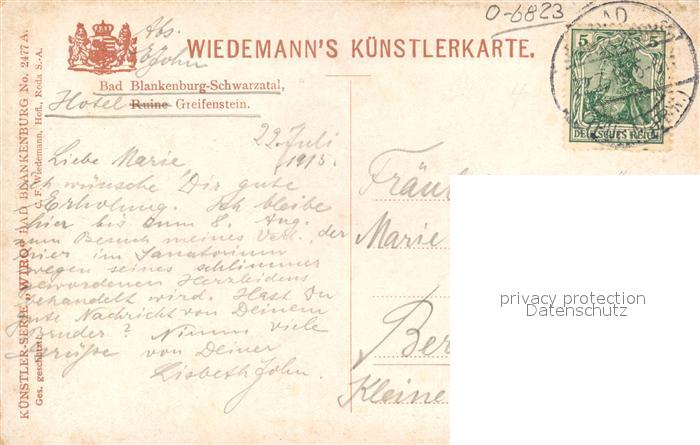 O-6823
Abs.
E. John
WIEDEMANN'S KÜNSTLERKARTE.
Bad Blankenburg-Schwarzatal,
Hotel Ruine Greifenstein.
BAD
5 5
DEUTSCHES REICH
KÜNSTLER-SERIE „WIRO“ BAD BLANKENBURG No. 2477 A.
Ges. geschützt. C. F. Wiedemann, Hofl., Roda S.-A.
22. Juli
1915.
Liebe Marie
Ich wünsche Dir gute
Erholung. Ich bleibe
hier bis zum 8. Aug.
zum Besuch meines Verl., der
hier im Sanatorium
wegen seines schlimmer
gewordenen Herzleidens
behandelt wird. Hast Du
gute Nachricht von Deinem
Bruder? Nimm viele
Grüße von Deiner
Lisbeth John.
Fräul
Marie
Ber
Kleine
privacy protection
Datenschutz